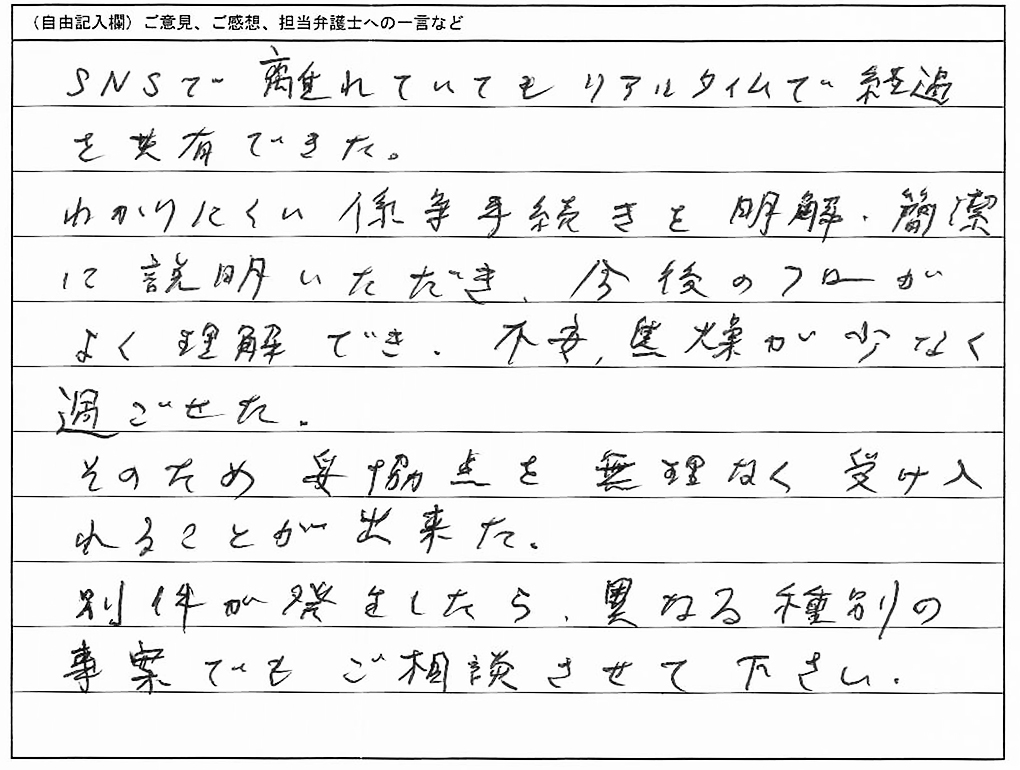 （自由記入欄）ご意見、ご感想、担当弁護士への一言など
SNSで離れていてもリアルタイムで経過
を共有できた。
わかりにくい係争手続きを明解・簡潔
に説明いただき、今後のフローが
よく理解でき、不安,焦燥が少なく
過ごせた。
そのため妥協点を無理なく受け入
れることが出来た。
別件が発生したら、異なる種別の
事案でもご相談させて下さい。